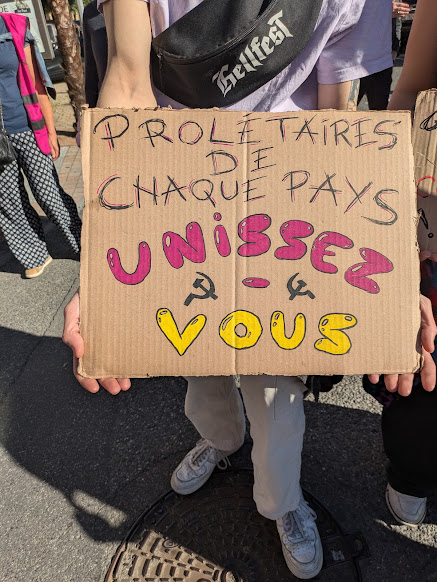 Hellfest
PROLÉTAIRES
DE
CHAQUE PAYS
UNiSSEZ
-
VOUS